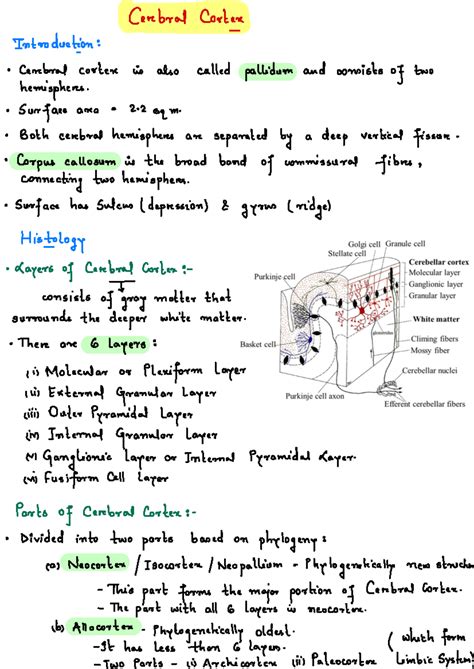 Cerebral Cortex
Introduction:
• Cerebral cortex is also called pallidum and consists of two
hemispheres.
• Surface area = 2.2 sq m.
• Both cerebral hemispheres are separated by a deep vertical fissure.
• Corpus callosum is the broad band of commissural fibres,
connecting two hemispheres.
• Surface has Sulcus (depression) & gyrus (ridge)
Histology
• Layers of Cerebral Cortex :-
consists of gray matter that
surrounds the deeper white matter.
• There are 6 layers :
(i) Molecular or Plexiform Layer
(ii) External Granular Layer
(iii) Outer Pyramidal Layer
(iv) Internal Granular Layer
(v) Ganglionic Layer or Internal Pyramidal Layer.
(vi) Fusiform Cell Layer
Golgi cell
Granule cell
Stellate cell
Cerebellar cortex
Molecular layer
Ganglionic layer
Granular layer
Purkinje cell
White matter
Basket cell
Climing fibers
Mossy fiber
Cerebellar nuclei
Purkinje cell axon
Efferent cerebellar fibers
Parts of Cerebral Cortex :-
• Divided into two parts based on phylogeny :
(a) Neocortex / Isocortex / Neopallism - Phylogenetically new structu
- This part forms the major portion of Cerebral Cortex.
- The part with all 6 layers is neocortex.
(b) Allocortex - Phylogenetically oldest.
- It has less than 6 layers.
- Two Parts - (i) Archicortex (ii) Paleocortex (which form
Limbic System)